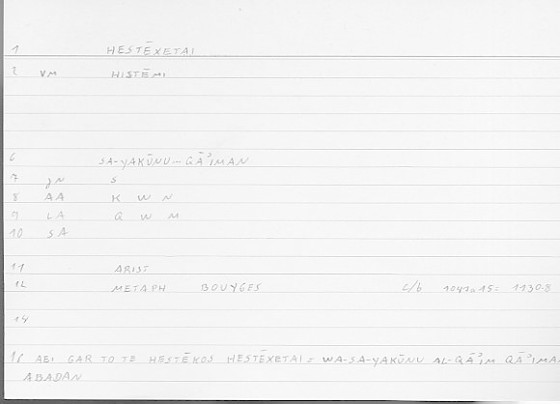 1 HESTĒXETAI
2 VM HISTĒMI
6 SA-YAKŪNU -- QĀʾIMAN
7 JN S
8 AA K W N
9 LA Q W M
10 SA
11 ARIST
12 METAPH BOUYGES L/b 1047a15: 1130.8
14
15 AEI GAR TO TE HESTĒKOS HESTĒXETAI = WA-SA-YAKŪNU AL-QĀʾIM QĀʾIMA
ABADAN